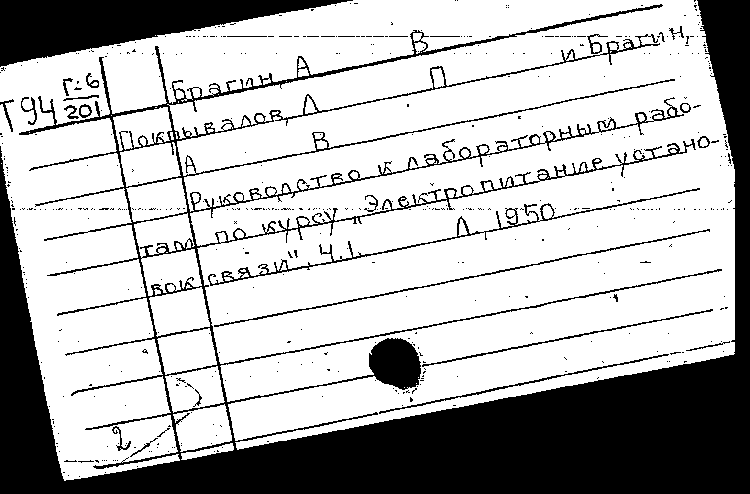 Т94 Г-6/201
Брагин, А В
Покрывалов, Л П и Брагин,
А В
Руководство к лабораторным рабо-
там по курсу „Электропитание устано-
вок связи", ч.1. Л., 1950
2